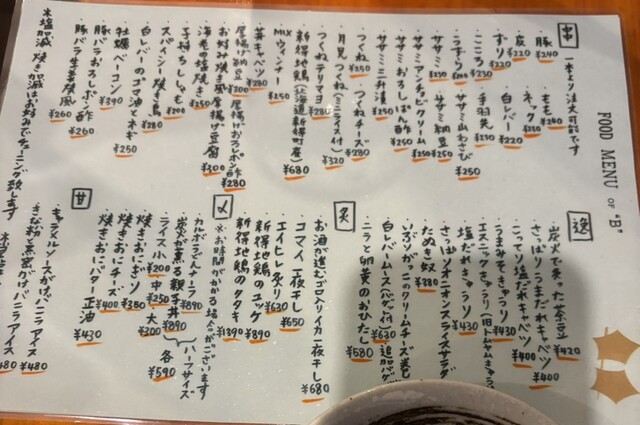 FOOD MENU OF "B"
串 一本より注文可能です
豚 ¥240
もも ¥240
皮 ¥220
ネック ¥230
ずり ¥220
白レバー ¥220
こころ ¥230
手羽先 ¥250
うずら ¥200
ササミ山わさび ¥250
ササミ ¥230
ササミ納豆 ¥250
ササミアンチョビクリーム ¥250
ササミおろしぽん酢 ¥250
ササミ二升漬 ¥250
つくね ¥250
つくねチーズ ¥280
月見つくね(ミニライス付) ¥320
つくねテリマヨ ¥280
新得地鶏(北海道新得町産) ¥680
MIXウィンナー ¥250
芽キャベツ ¥280
厚揚げ納豆 ¥300
厚揚げおろしポン酢 ¥280
お好み焼き風厚揚げ豆腐 ¥300
海老の塩焼き ¥250
子持ちししゃも ¥200
スパイシー焼き鳥 ¥280
白レバーのゴマ油とネギ ¥250
牡蠣ベーコン ¥390
豚バラおろしポン酢 ¥260
豚バラ生姜焼風 ¥260
※塩加減 焼き加減はお好みでチューニング致します
逸
炭火で炙った茶豆 ¥420
さっぱりうまだれキャベツ ¥400
こってり塩だれキャベツ ¥400
うまみそきゅうり ¥430
エスニックきゅうり(旧トムヤムきゅうり
塩だれきゅうり ¥430
さっぱりオニオンスライスサラダ
たぬき奴 ¥380
いぶりがっこのクリームチーズ巻
白レバームース(バゲット付) ¥630 追加バゲ
ニラと卵黄のおひたし ¥580
炙
お酒が進むゴロ入りイカ一夜干し ¥680
コマイ一夜干し ¥650
エイヒレ炙り ¥630
新得地鶏のユッケ ¥890
新得地鶏のタタキ ¥1390
〆 ※お時間がかかる場合がございます
カルボうどんナーラ ¥890
炭火が薫る親子丼 ¥890
ハーフサイズ 各 ¥590
ライス 小 ¥200 中 ¥250 大 ¥300
焼きおにぎり ¥350
焼きおにチーズ ¥400
焼きおにバター正油 ¥430
甘
キャラメルソースがけバニラアイス ¥480
きなこと黒蜜がけバニラアイス ¥480